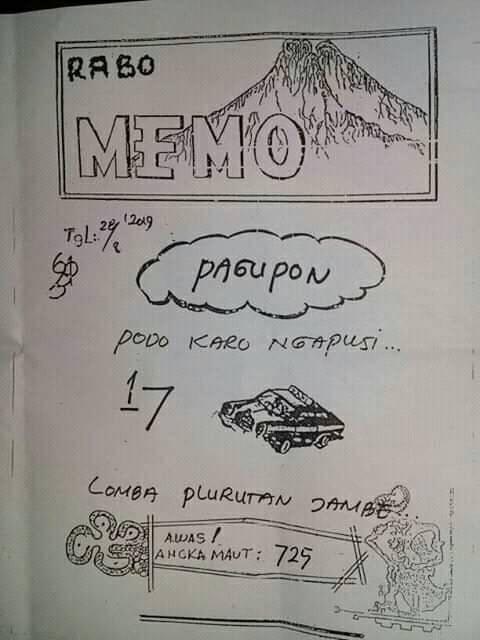 RABO
MEMO
TgL: 28/8 '2019
PAGUPON
PODO KARO NGAPUSI...
17
LOMBA PLURUTAN JAMBE...
AWAS!
ANGKA MAUT: 725